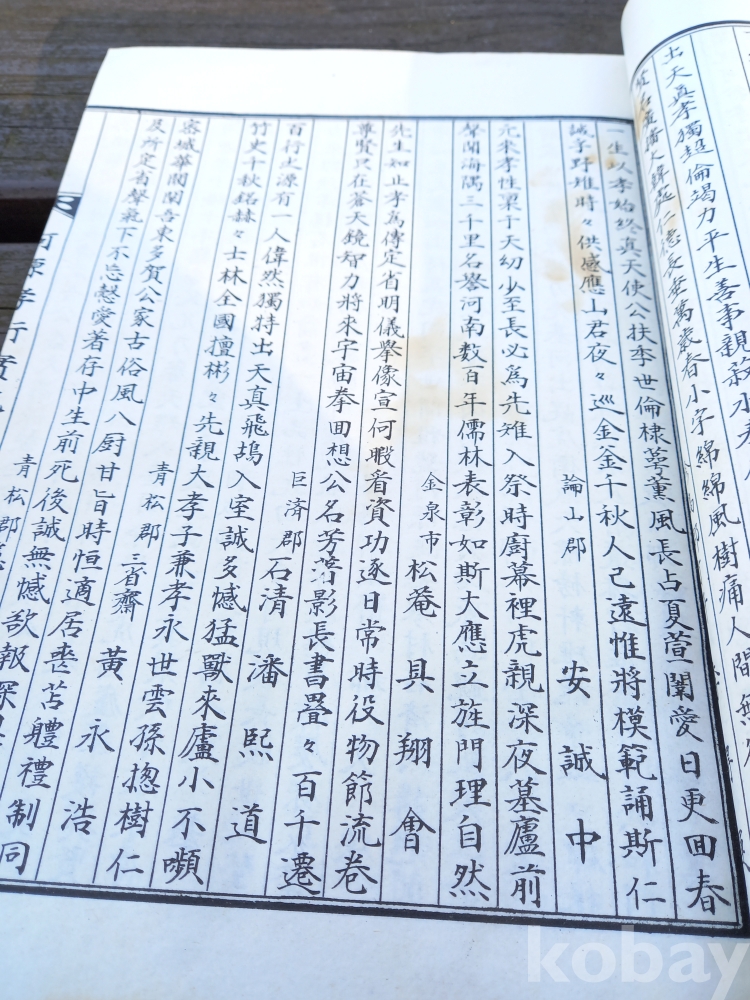 出天真孝獨超倫竭力平生善事親
仁德長安萬歲春小字綿綿風樹痛人間無
一生以孝始終真天使公扶李世倫棣萼薰風長占夏萱闈愛日更回春
誠孚野堆時々供感應山君夜々巡金釜千秋人已遠惟將模範誦斯仁
論山郡 安誠中
元來孝性稟于天幼少至長必爲先雉入祭時廚幕裡虎親深夜墓廬前
聲聞海隅三千里名譽河南数百年儒林表彰如斯大應立旌門理自然
金泉市 松菴 具翔會
先生如止孝爲傳定省明儀擧像宣何暇看資功逐日常時役物節流卷
尊賢只在蒼天鏡智力將來宇宙拳回想公名芳影長書疊々百千遷
巨済郡 石清 潘熙道
百行之源有一人偉然獨特出天真飛鴣入室誠多憾猛獸來廬小不嚬
竹史千秋銘赫々士林全國擅彬々先親大孝子兼孝永世雲孫揔樹仁
青松郡 三省齋 黄永浩
容城華閥聞吾東多賀公家古俗風八廚甘旨時恒適居喪苫軆禮制同
及所定省聲氣下不忘慤愛者存中生前死後誠無憾欲報深
青松郡
kobay